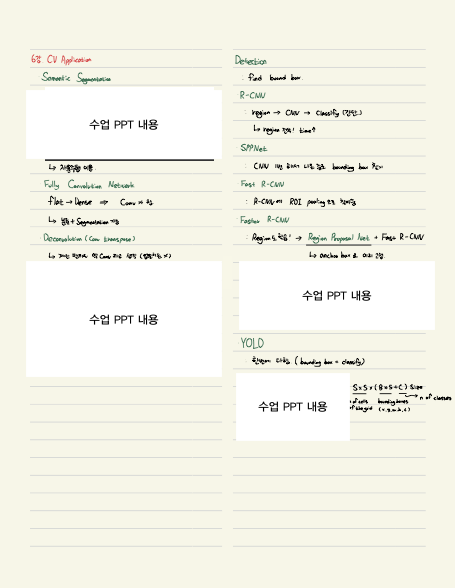 6강 CV Application
Semantic Segmentation
수업 PPT 내용
↳ 자율주행 이용
Fully Convolution Network
flat → Dense ⇒ Conv
↳ 분류 + Segmentation 가능
Deconvolution (Conv transpose)
수업 PPT 내용
Detection
: find bound box
R-CNN
: region → CNN → Classify
↳ region 전부! time↑
SPPNet
: CNN bounding box
Fast R-CNN
: R-CNN에 ROI pooling
Faster R-CNN
: Region도 학습! → Region Proposal Net + Fast R-CNN
↳ anchor box
수업 PPT 내용
YOLO
한번에 (bounding box + classify)
수업 PPT 내용
S×S×(B×5+C) Size
n of classes
bounding boxes
of the grid (x,y,w,h,c)